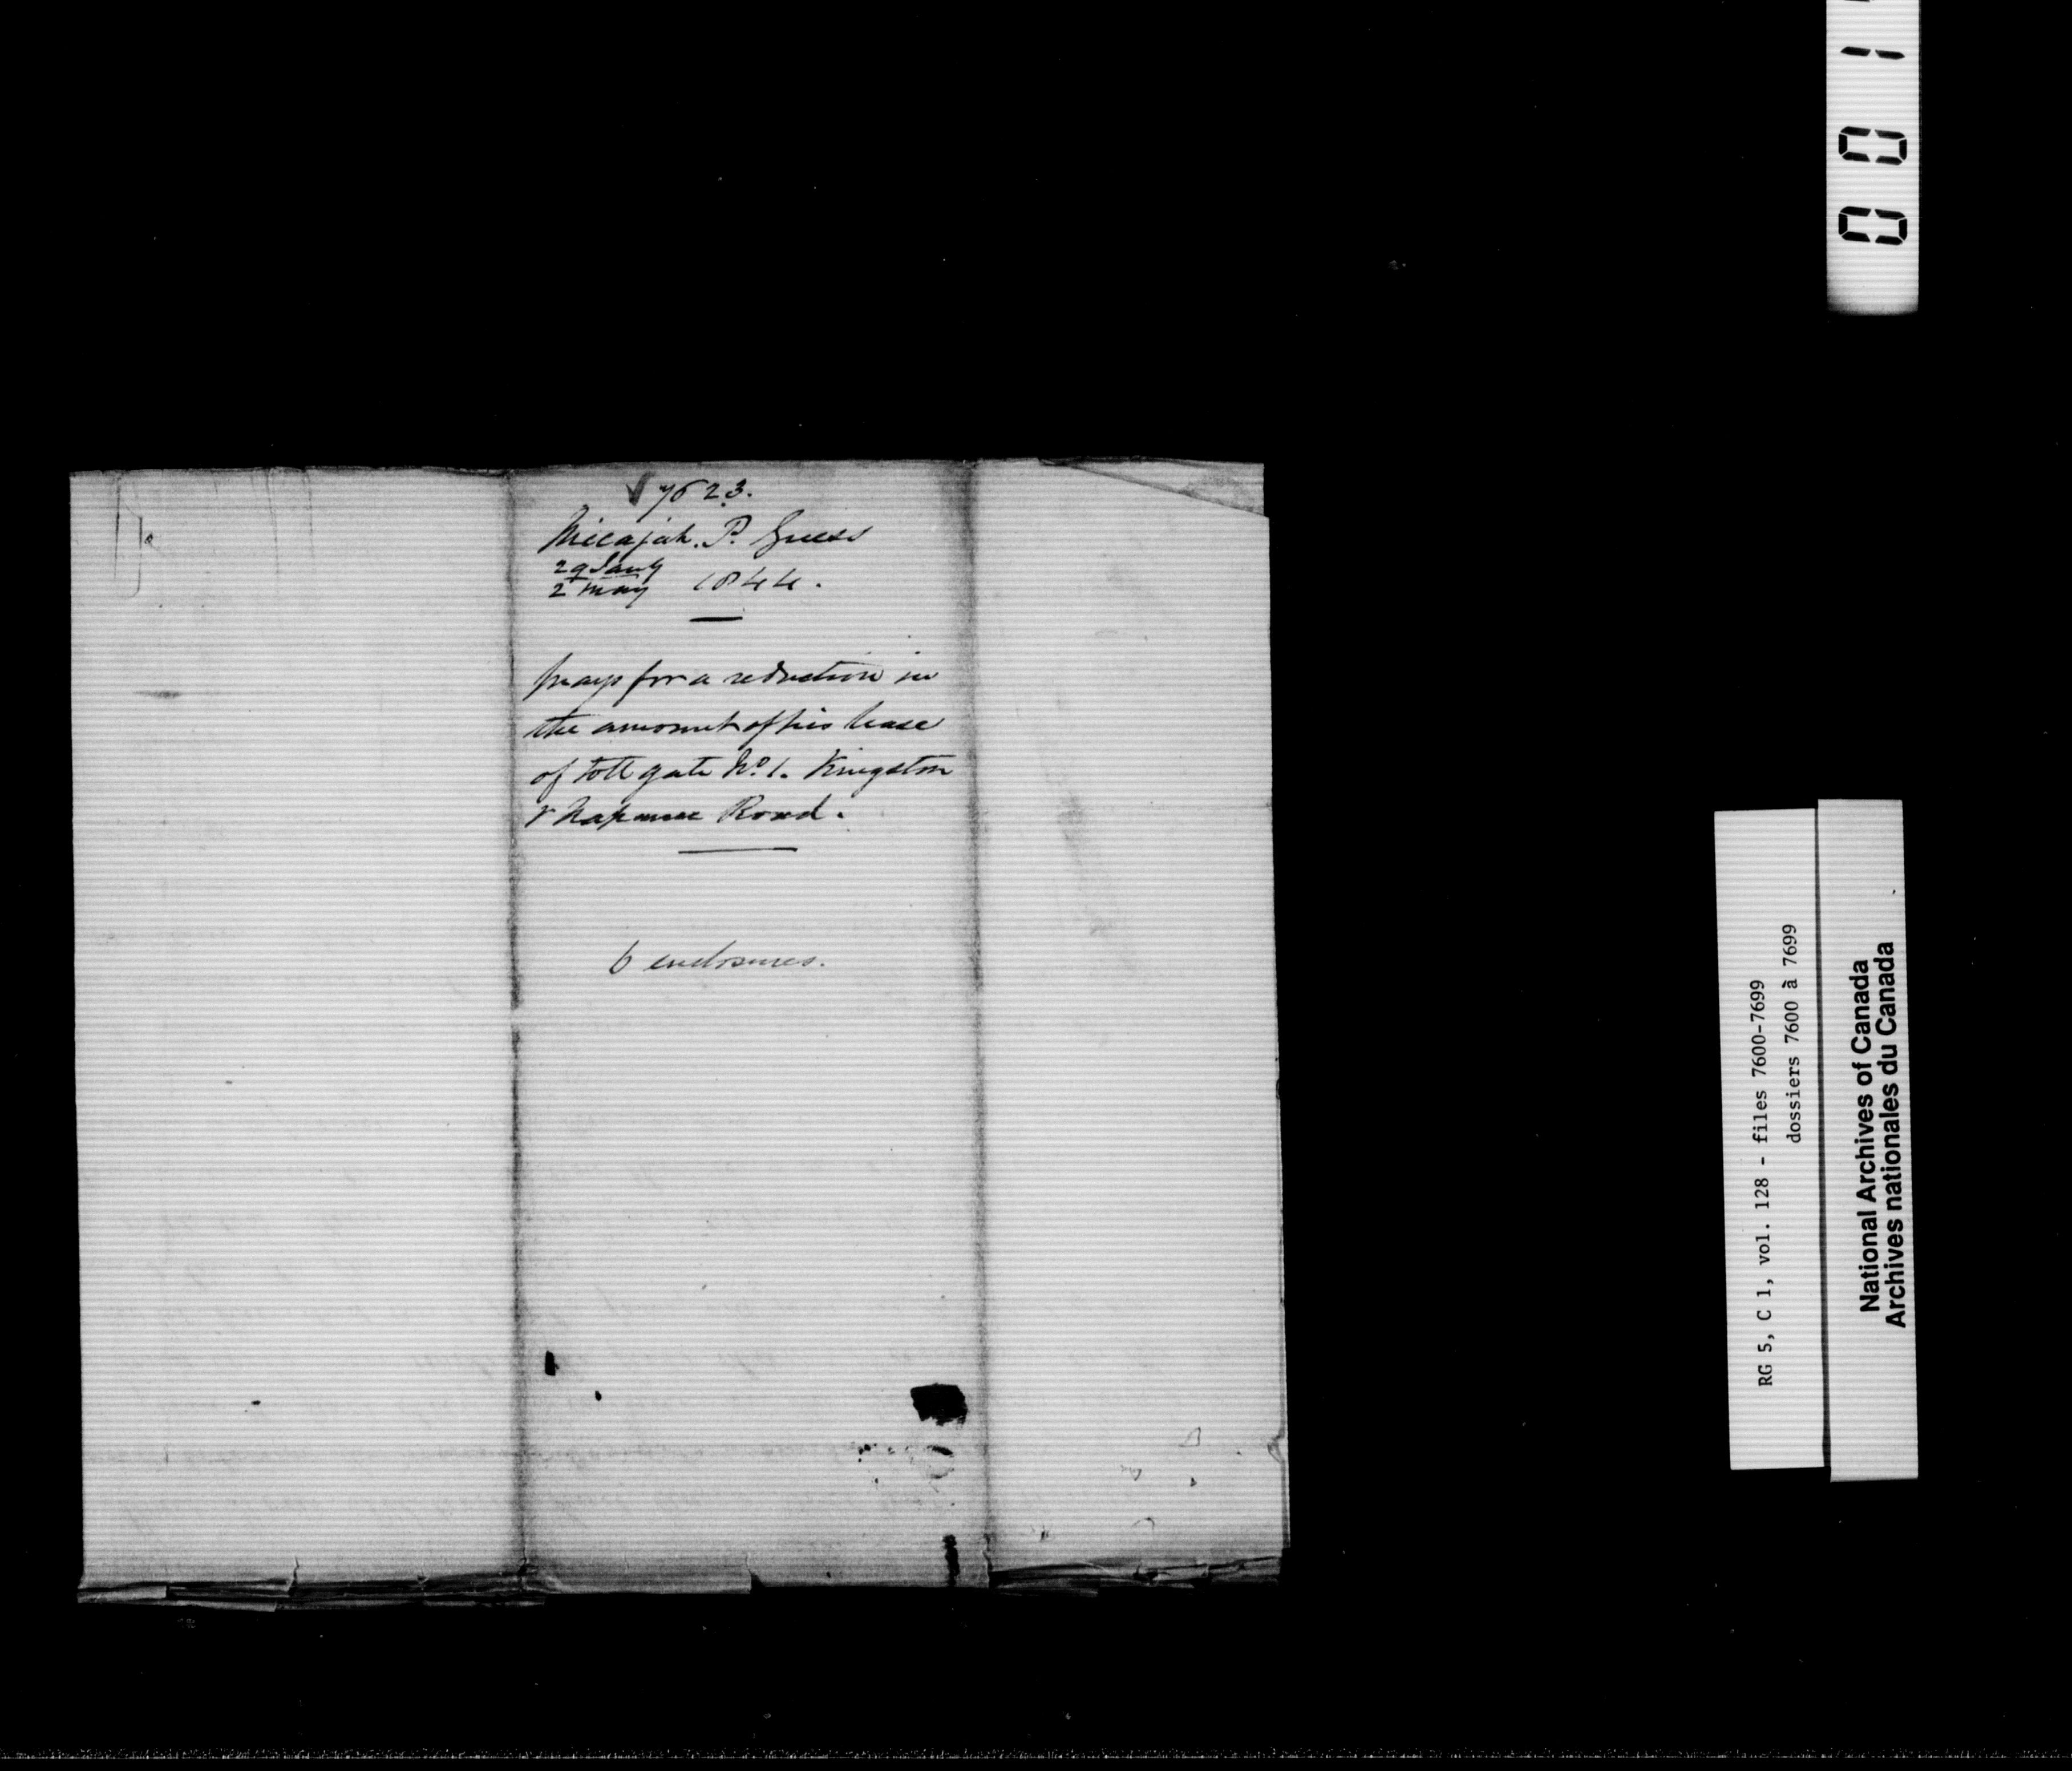 ✓ 7623.
Micajah. P. Guess
29 Jany
2 May 1844.
prays for a reduction in
the amount of his lease
of Toll gate No. 1. Kingston
& Napanee Road.
6 enclosures.
0 0 1
RG 5, C 1, vol. 128 - files 7600-7699
dossiers 7600 à 7699
National Archives of Canada
Archives nationales du Canada